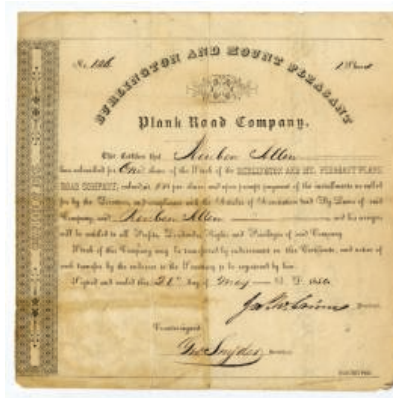 No. 126
1 Share
BURLINGTON AND MOUNT PLEASANT
Plank Road Company.
This Certifies that Reuben Allen
has subscribed for One share of the Stock of the BURLINGTON AND MT. PLEASANT PLANK
ROAD COMPANY, valued at $50 per share and upon prompt payment of the installments as called
for by the Directors, and compliance with the Articles of Association and By-Laws of said
Company, said Reuben Allen and his assigns
will be entitled to all Profits, Dividends, Rights and Privileges of said Company.
Stock of this Company may be transferred by endorsement on this Certificate, and notice of
such transfer by the endorser to the Secretary to be registered by him.
Signed and sealed this 21st day of May A. D. 1850.
Jas. W. Grimes President.
Countersigned
Geo. Snyder, Secretary.